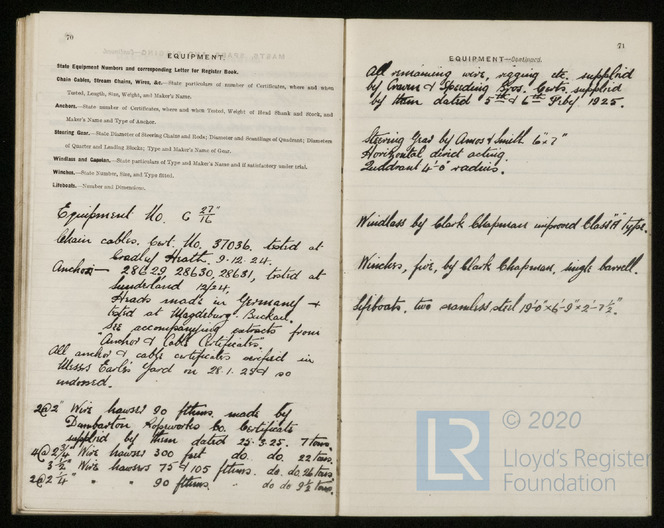 70
EQUIPMENT.
State Equipment Numbers and corresponding Letter for Register Book.
Chain Cables, Stream Chains, Wires, &c.—State particulars of number of Certificates, where and when
Tested, Length, Size, Weight, and Maker's Name.
Anchors.—State number of Certificates, where and when Tested, Weight of Head Shank and Stock, and
Maker's Name and Type of Anchor.
Steering Gear.—State Diameter of Steering Chains and Rods; Diameter and Scantlings of Quadrant; Diameters
of Quarter and Leading Blocks; Type and Maker's Name of Gear.
Windlass and Capstan.—State particulars of Type and Maker's Name and if satisfactory under trial.
Winches.—State Number, Size, and Type fitted.
Lifeboats.—Number and Dimensions.
Equipment No. G 27"/16
Chain cables. Cert. No. 37036, tested at
Cradley Heath. 9.12.24.
Anchors— 28629, 28630, 28631, tested at
Sunderland 12/24.
Heads made in Germany +
tested at Magdeburg-Buckau.
See accompanying extracts from
"Anchor & Cable Certificates".
All anchor & cable certificates verified in
Messrs Earle's Yard on 28.1.25 & so
endorsed.
2@2" Wire hawser 90 fthms. made by
Dumbarton Ropeworks Co. Certificate
supplied by them dated 25.3.25. 7 tons.
Wire hawser 300 feet do. do. 22 tons.
Wire hawsers 75 & 105 fthms. do. do. 26 tons
2@2 1/4" " " 90 fthms. " do do 9 1/2 tons.
71
EQUIPMENT—Continued.
All remaining wire, rigging etc. supplied
by Craven & Speeding Bros. Certs. supplied
by them dated 5th & 6th Feby 1925.
Steering Gear by Amos & Smith. 6"x7"
Horizontal direct acting.
Quadrant 4'-0" radius.
Windlass by Clark Chapman improved Class "A" type.
Winches, five, by Clark Chapman, single barrell.
Lifeboats. two seamless steel 19'-0"x6'-9"x2'-7 1/2".
LR
© 2020
Lloyd's Register
Foundation